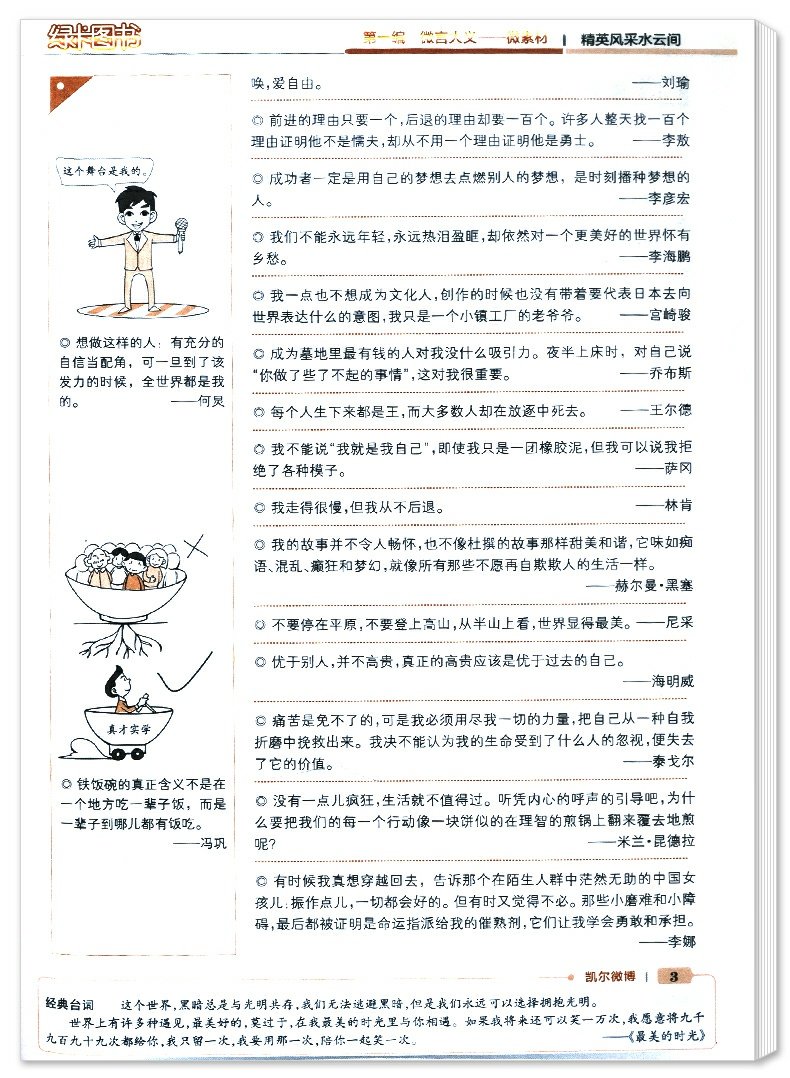 绿卡图书
第一编 微言大义——微素材 | 精英风采水云间
唤,爱自由。 ——刘瑜
◎ 前进的理由只要一个,后退的理由却要一百个。许多人整天找一百个
理由证明他不是懦夫,却从不用一个理由证明他是勇士。 ——李敖
◎ 成功者一定是用自己的梦想去点燃别人的梦想,是时刻播种梦想的
人。 ——李彦宏
◎ 我们不能永远年轻,永远热泪盈眶,却依然对一个更美好的世界怀有
乡愁。 ——李海鹏
◎ 我一点也不想成为文化人,创作的时候也没有带着要代表日本去向
世界表达什么的意图,我只是一个小镇工厂的老爷爷。 ——宫崎骏
◎ 成为墓地里最有钱的人对我没什么吸引力。夜半上床时,对自己说
“你做了些了不起的事情”,这对我很重要。 ——乔布斯
◎ 每个人生下来都是王,而大多数人却在放逐中死去。 ——王尔德
◎ 我不能说“我就是我自己”,即使我只是一团橡胶泥,但我可以说我拒
绝了各种模子。 ——萨冈
◎ 我走得很慢,但我从不后退。 ——林肯
◎ 我的故事并不令人畅怀,也不像杜撰的故事那样甜美和谐,它味如痴
语、混乱、癫狂和梦幻,就像所有那些不愿再自欺欺人的生活一样。
——赫尔曼·黑塞
◎ 不要停在平原,不要登上高山,从半山上看,世界显得最美。——尼采
◎ 优于别人,并不高贵,真正的高贵应该是优于过去的自己。
——海明威
◎ 痛苦是免不了的,可是我必须用尽我一切的力量,把自己从一种自我
折磨中挽救出来。我决不能认为我的生命受到了什么人的忽视,便失去
了它的价值。 ——泰戈尔
◎ 没有一点儿疯狂,生活就不值得过。听凭内心的呼声的引导吧,为什
么要把我们的每一个行动像一块饼似的在理智的煎锅上翻来覆去地煎
呢? ——米兰·昆德拉
◎ 有时候我真想穿越回去,告诉那个在陌生人群中茫然无助的中国女
孩儿:振作点儿,一切都会好的。但有时又觉得不必。那些小磨难和小障
碍,最后都被证明是命运指派给我的催熟剂,它们让我学会勇敢和承担。
——李娜
这个舞台是我的。
◎ 想做这样的人:有充分的
自信当配角,可一旦到了该
发力的时候,全世界都是我
的。 ——何炅
真才实学
◎ 铁饭碗的真正含义不是在
一个地方吃一辈子饭,而是
一辈子到哪儿都有饭吃。
——冯巩
凯尔微博 | 3
经典台词 这个世界,黑暗总是与光明共存,我们无法逃避黑暗,但是我们永远可以选择拥抱光明。
世界上有许多种遇见,最美好的,莫过于,在我最美的时光里与你相遇。如果我将来还可以笑一万次,我愿意将九千
九百九十九次都给你,我只留一次,我要用那一次,陪你一起笑一次。 ——《最美的时光》